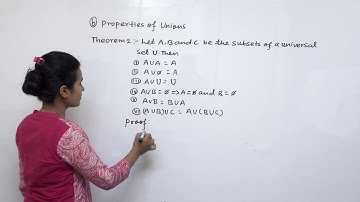 ⓑ Properties of Unions
Theorem 2 :- Let A, B and C be the subsets of a universal
Set U. Then
ⓘ A∪A = A
ⓘⓘ A∪ø = A
ⓘⓘⓘ A∪U = U
ⓘⓥ A∪B = ø ⇒ A = ø and B = ø
ⓥ A∪B = B∪A
ⓥⓘ (A∪B)∪C = A∪(B∪C)
Proof: